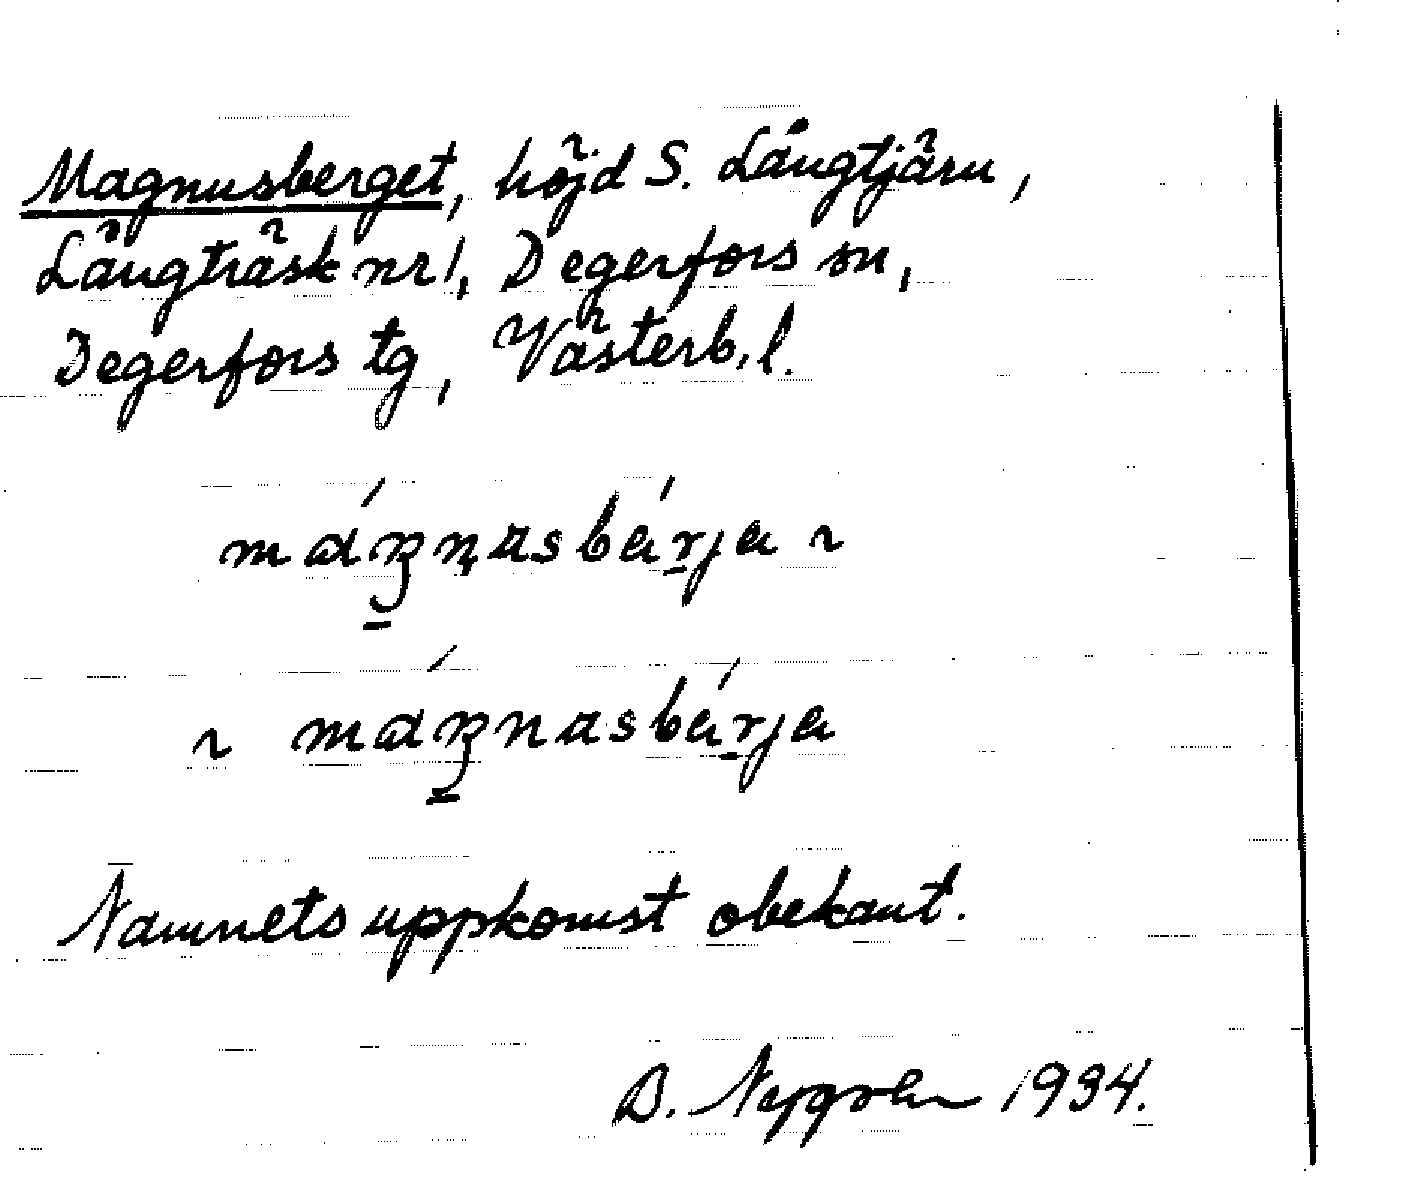 Magnusberget, höjd S. Långtjärn,
Långträsk nr 1, Degerfors sn,
Degerfors tg, Västerb. l.
Namnets uppkomst obekant.
1934.